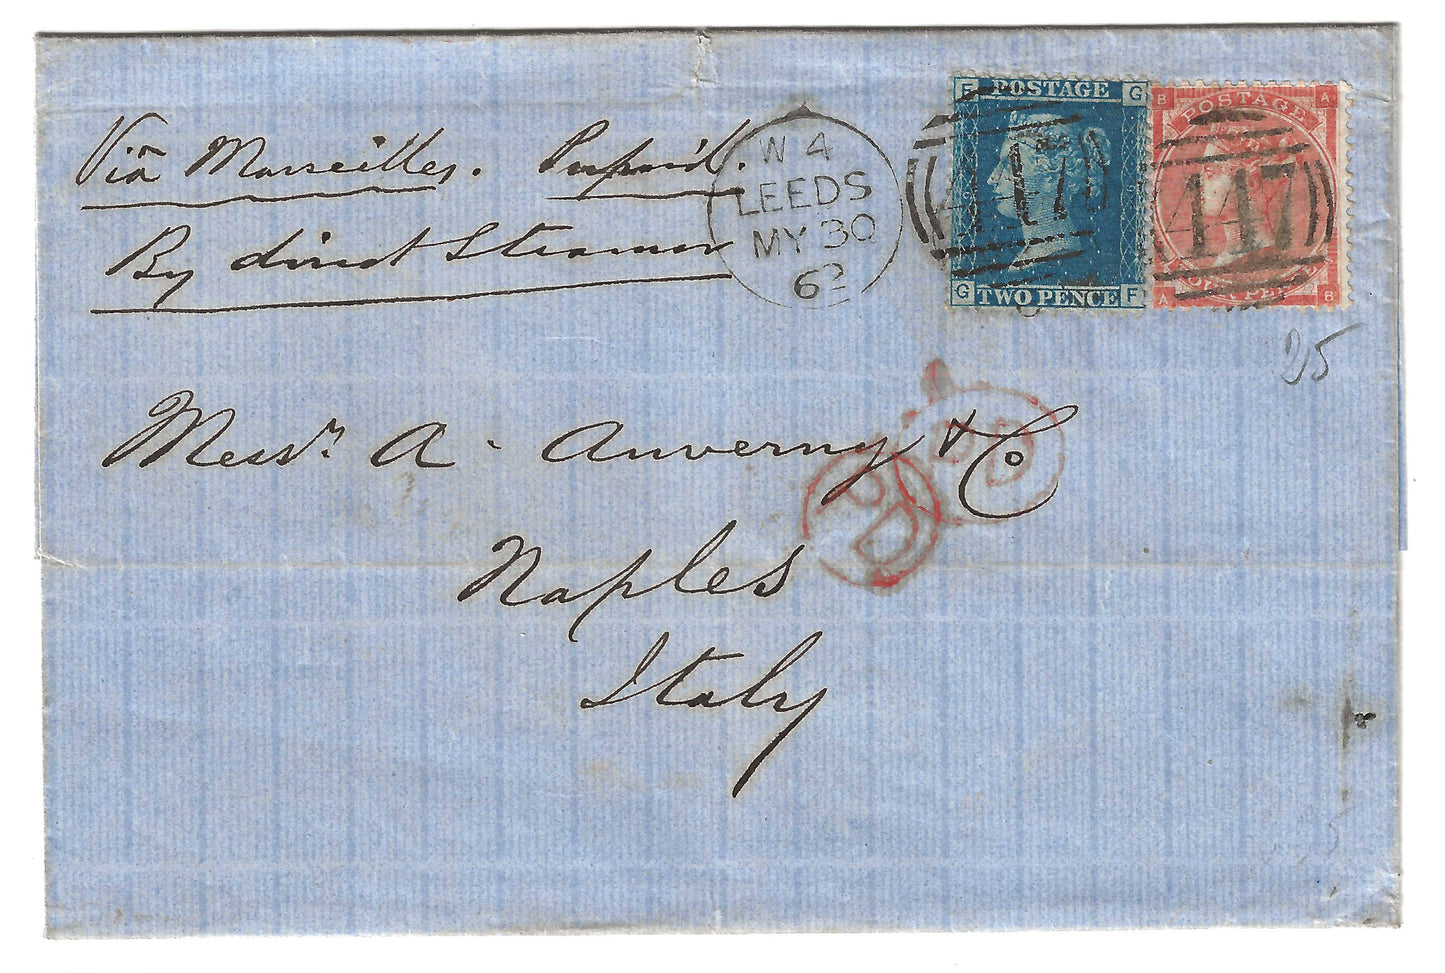 Via Marseilles. Prepaid.
By direct Steamer
W 4
LEEDS
MY 30
63
F POSTAGE G
447
G TWO PENCE F
B POSTAGE A
447
A B
25
Messrs. A. Auverny & Co
PD
PD
Naples
Italy